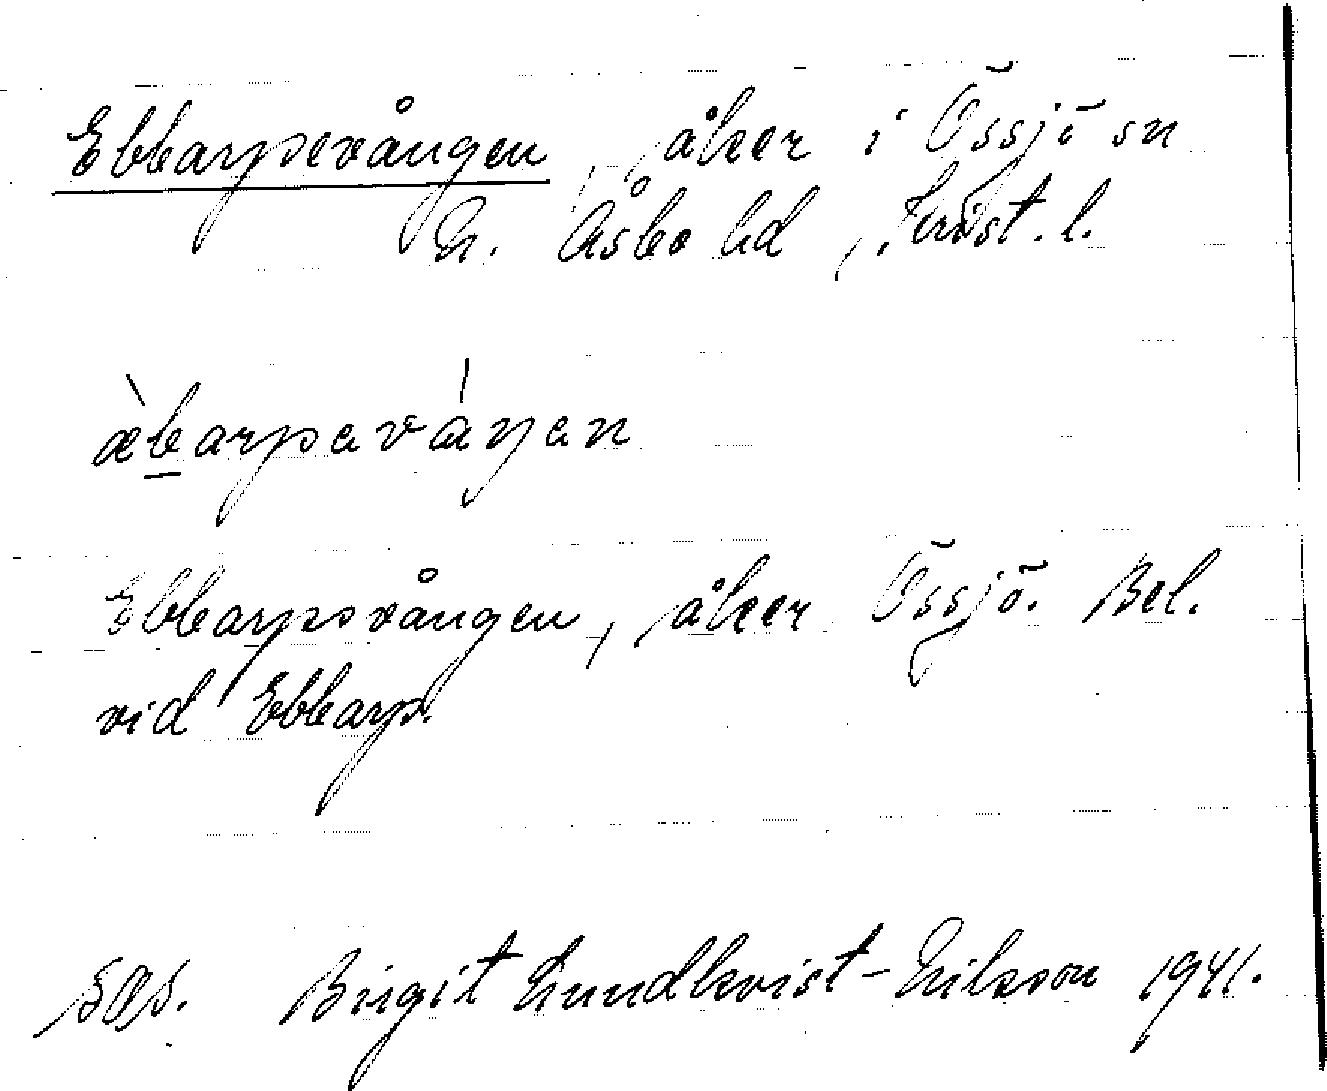 Ebbarpsvången, åker i Össjö sn
N. Åsbo hd, Krist. l.
æ̀barpaváŋen
Ebbarpsvången, åker Össjö. Bel.
vid Ebbarp.
Birgit Lundkvist-Nilsson 1941.